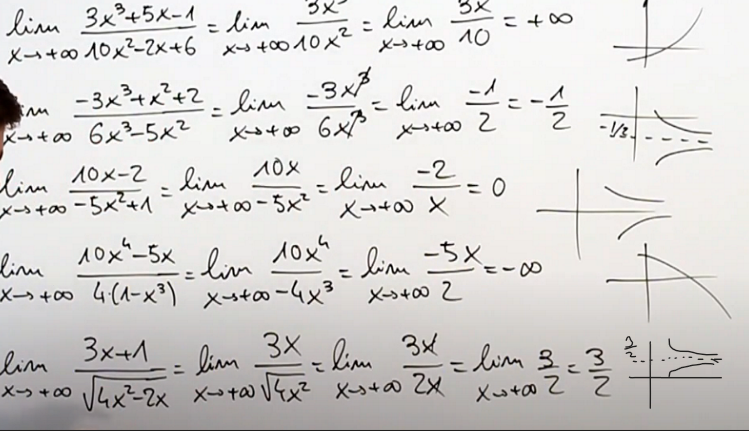 lim x→+∞ (3x³+5x-1)/(10x²-2x+6) = lim x→+∞ 3x³/10x² = lim x→+∞ 3x/10 = +∞
lim x→+∞ (-3x³+x²+2)/(6x³-5x²) = lim x→+∞ -3x³/6x³ = lim x→+∞ -1/2 = -1/2 -1/3
lim x→+∞ (10x-2)/(-5x²+1) = lim x→+∞ 10x/-5x² = lim x→+∞ -2/x = 0
lim x→+∞ (10x⁴-5x)/(4·(1-x³)) = lim x→+∞ 10x⁴/-4x³ = lim x→+∞ -5x/2 = -∞
lim x→+∞ (3x+1)/√(4x²-2x) = lim x→+∞ 3x/√(4x²) = lim x→+∞ 3x/2x = lim x→+∞ 3/2 = 3/2 3/2